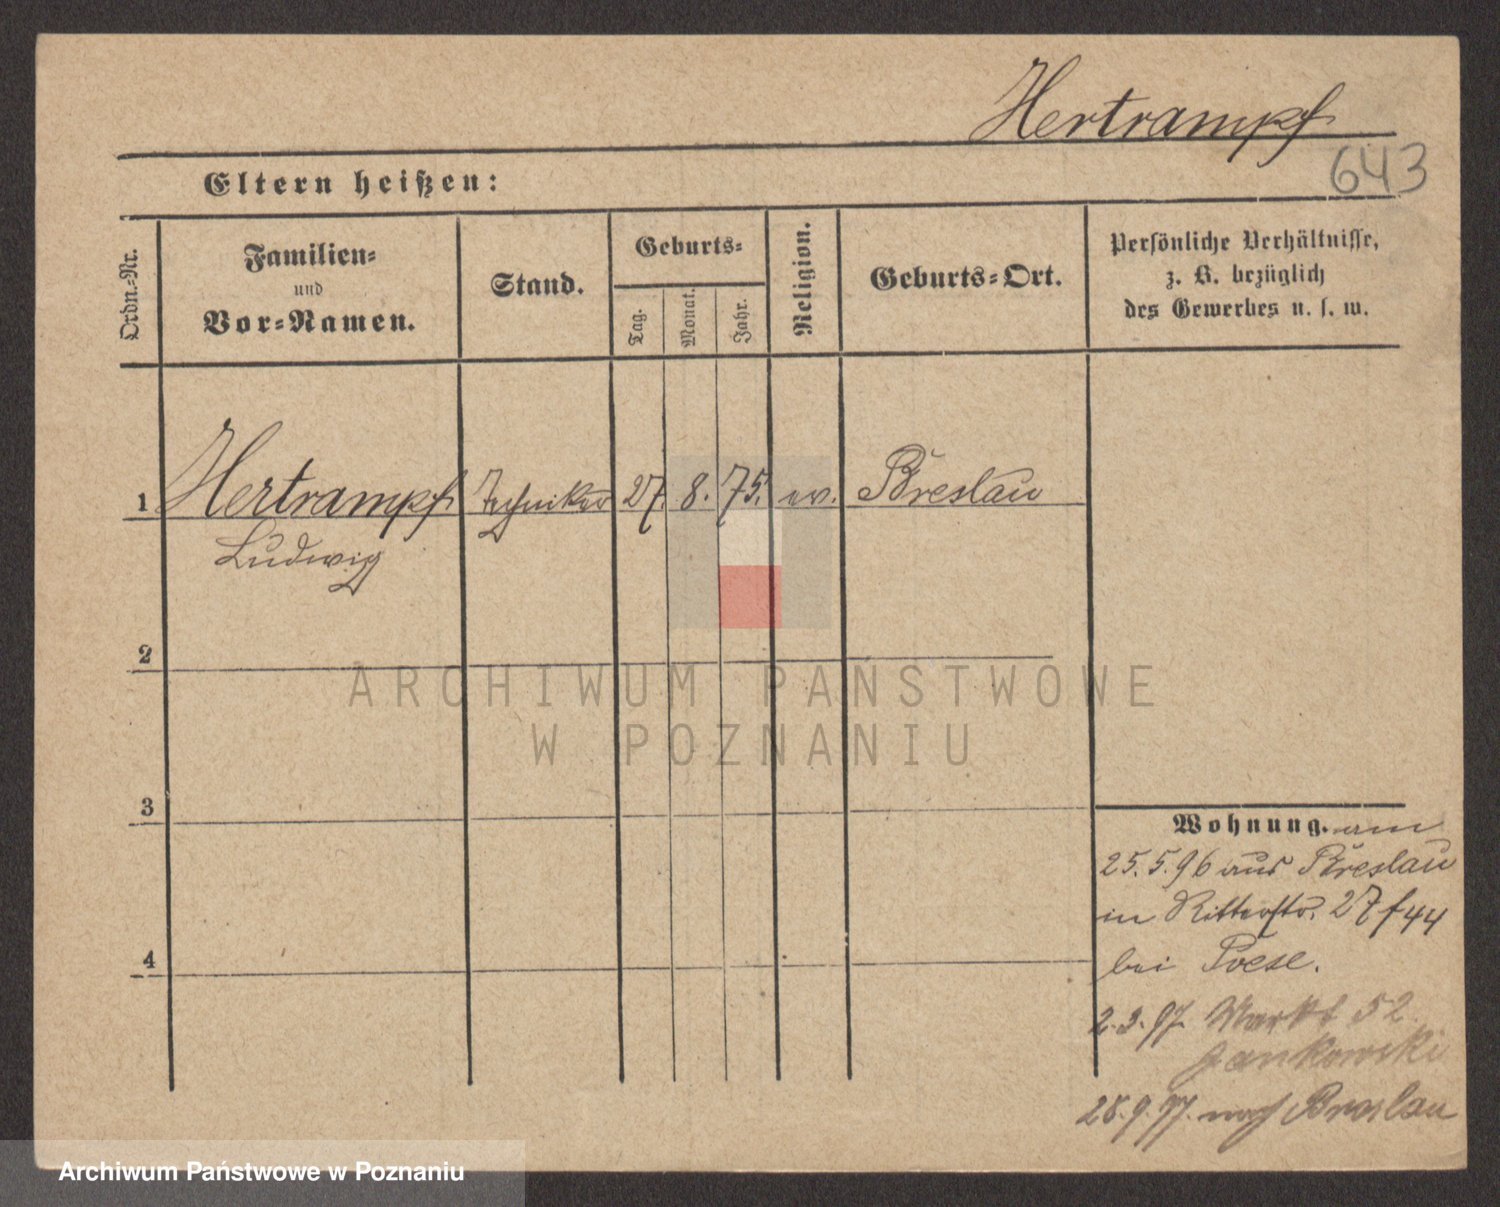 Hertrampf
643
Eltern heißen:
Ordn.-Nr.
Familien-
und
Vor-Namen.
Stand.
Geburts-
Tag.
Monat.
Jahr.
Religion.
Geburts-Ort.
Persönliche Verhältnisse,
z. B. bezüglich
des Gewerbes u. s. w.
1 Hertrampf Techniker 27. 8. 75. ev. Breslau
Ludwig
2
3
4
Wohnung. am
25.5.96 aus Breslau
in Ritterstr. 27 f 44
bei Poese.
2.3.97 Markt 52.
Jankowski
28.9.97. nach Breslau
ARCHIWUM PAŃSTWOWE
W POZNANIU
Archiwum Państwowe w Poznaniu